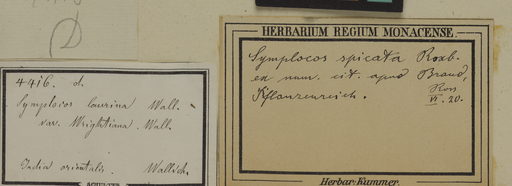 4416. d.
Symplocos laurina Wall.
var. Wrightiana. Wall.
India orientalis. Wallich.
HERBARIUM REGIUM MONACENSE.
Symplocos spicata Roxb.
ex num. cit. apud Brand,
Pflanzenreich.
Ross
VI. 20.
Herbar. Kummer.